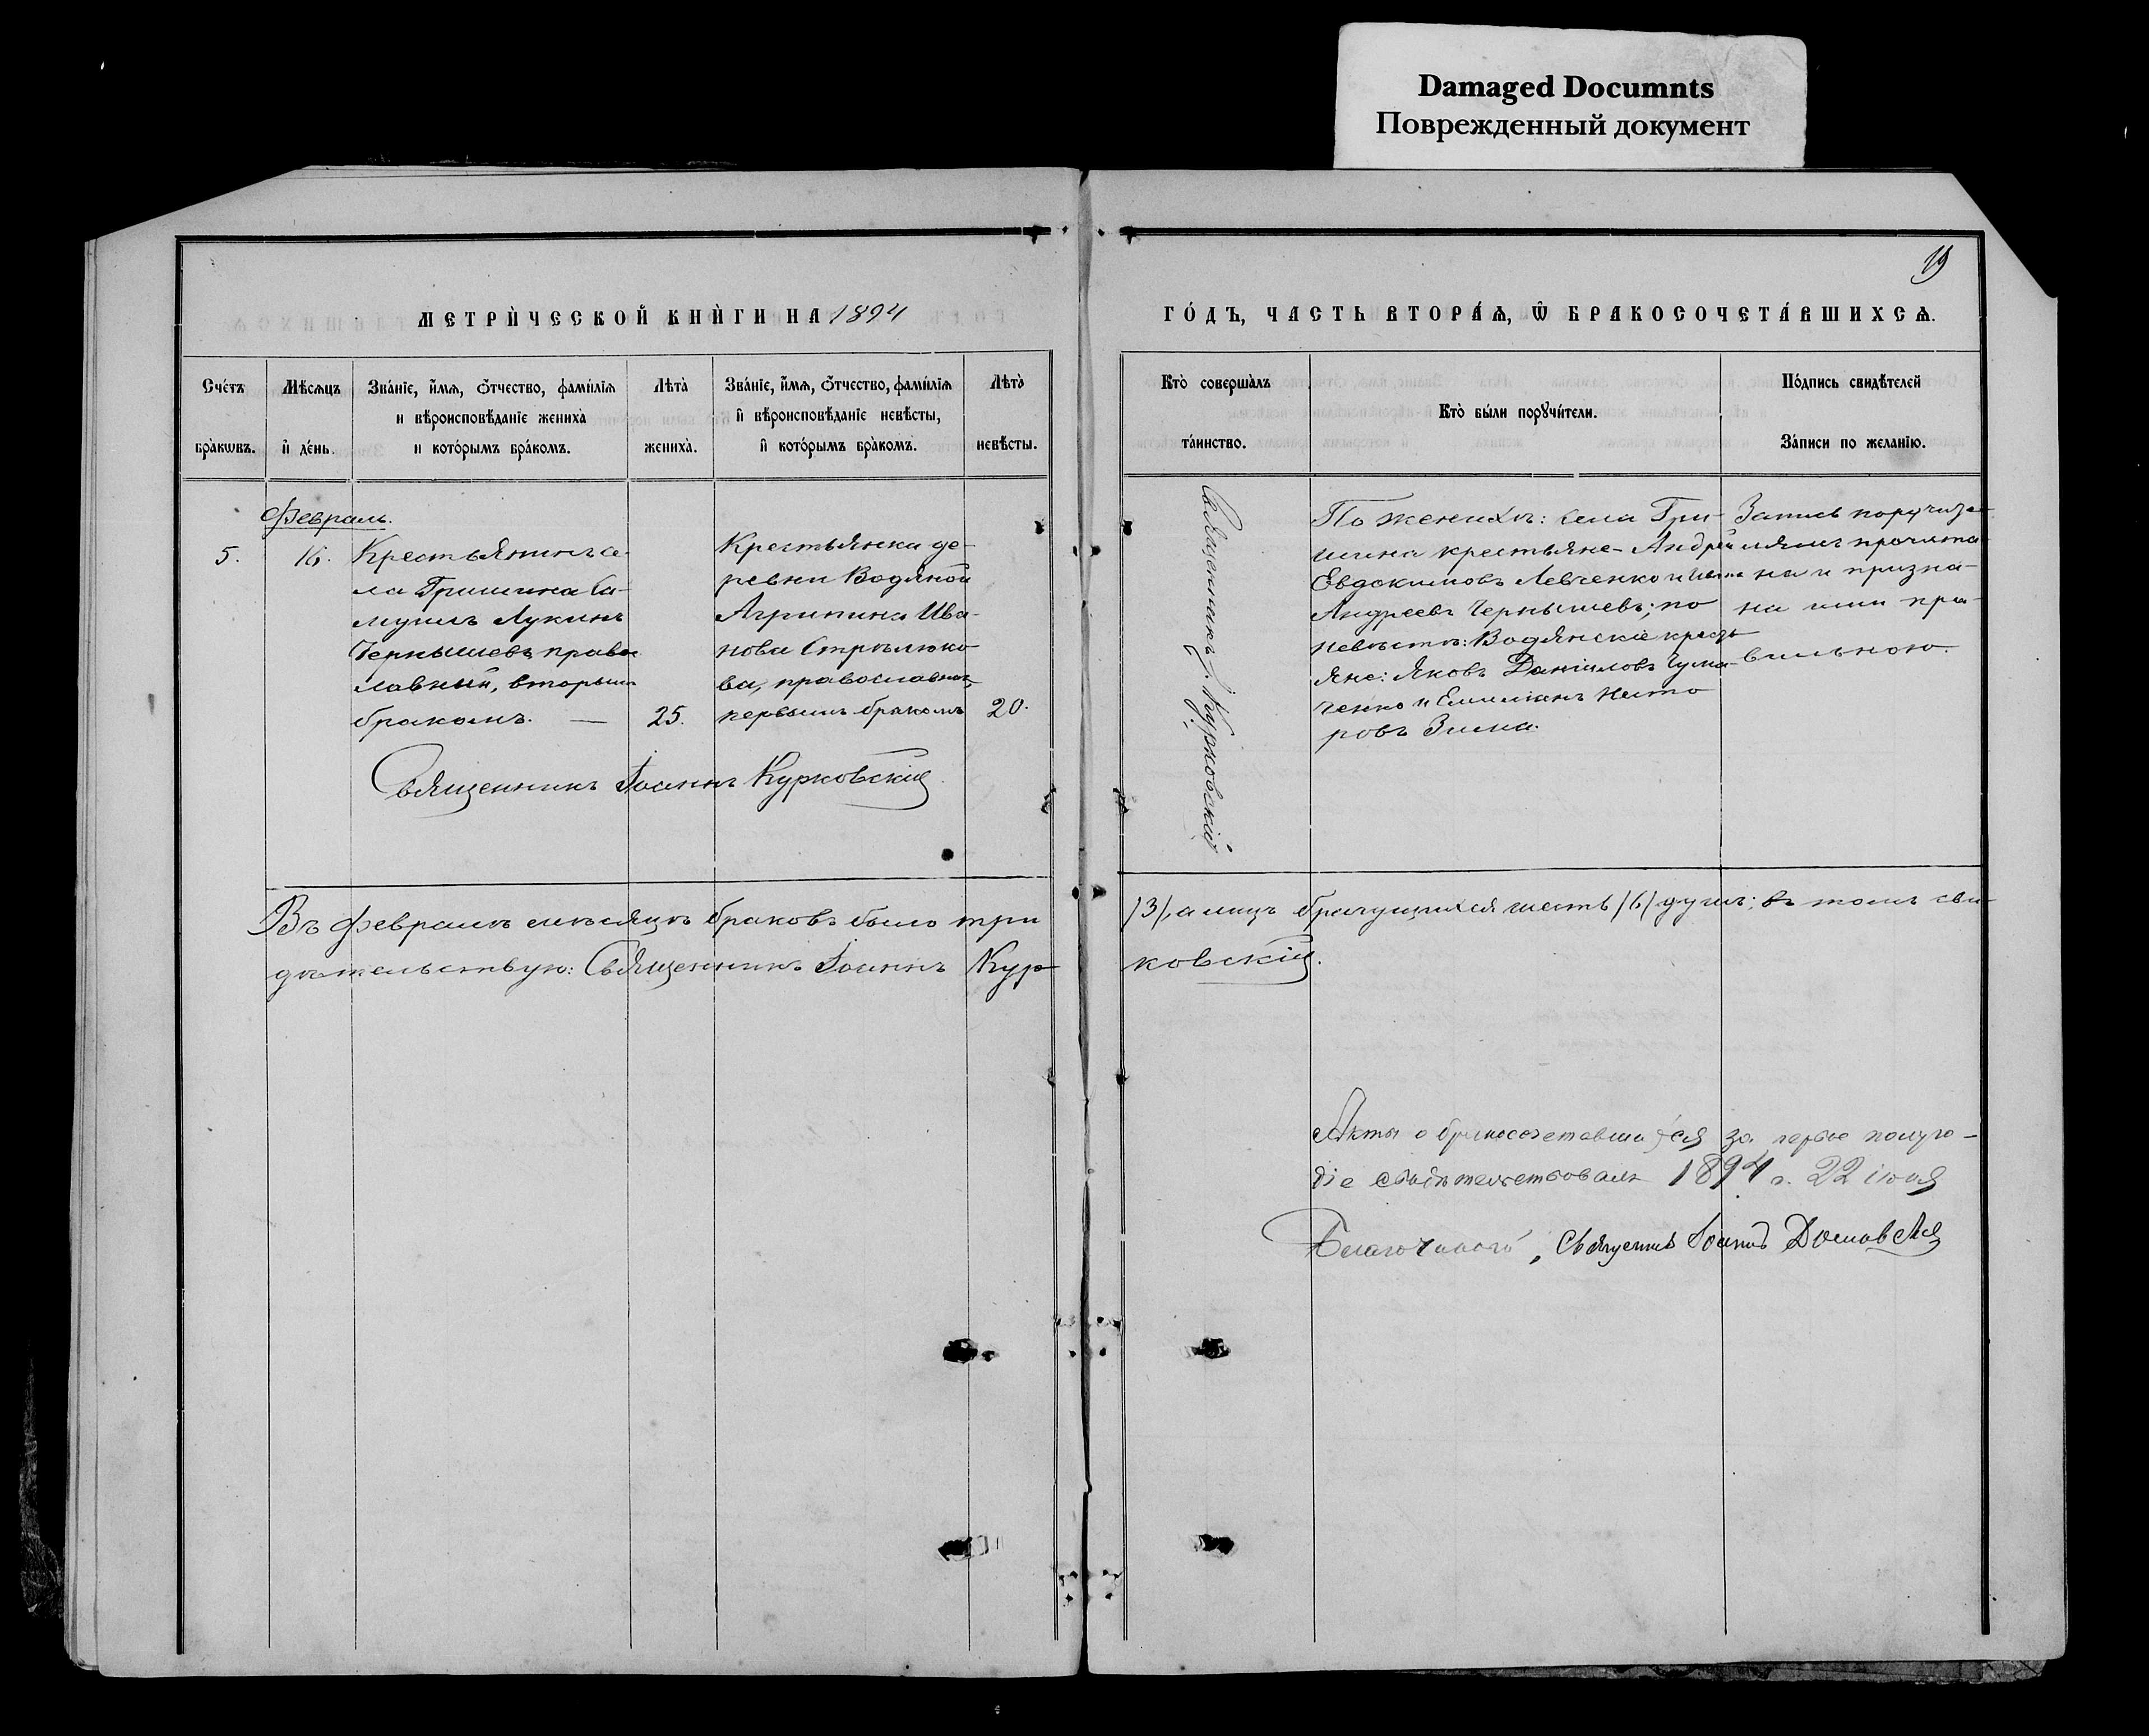 Damaged Documnts
Поврежденный документ
19
МЕТРИ́ЧЕСКОЙ КНИ́ГИ НА 1894
ГО́ДЪ, ЧАСТЬ ВТОРА́Ѧ, Ѽ БРАКОСОЧЕТА́ВШИХСѦ.
Сче́тъ бра̀кѡвъ.
Мѣ́сѧцъ и҆ де́нь.
Зва́нїе, и҆́мѧ, ѻ҆́тчество, фами́лїѧ
и вѣроисповѣ́данїе жениха̀
и кото́рымъ бра́комъ.
Лѣта̀ жениха̀.
Зва́нїе, и҆́мѧ, ѻ҆́тчество, фами́лїѧ
и҆ вѣроисповѣ́данїе невѣ́сты,
и҆ кото́рымъ бра̀комъ.
Лѣта̀ невѣ́сты.
Кто̀ соверша̀лъ та́инство.
Кто̀ бы́ли порꙋчи́тели.
По́дпись свидѣ́телей
За́писи по жела́нїю.
Февраль.
5.
16.
Крестьянинъ се-
ла Гришина Са-
муилъ Лукинъ
Чернышевъ, правос
лавный, вторымъ
бракомъ. —
25.
Крестьянка де-
ревни Водяной
Агрипина Ива-
нова Стрѣлюко-
ва, православная,
первымъ бракомъ
20.
Священникъ Іоаннъ Курковскій
Священникъ І. Курковскій
По женихѣ: села Гри-
шина крестьяне - Андрей
Евдокимовъ Левченко и Иванъ
Андреевъ Чернышевъ; по
невѣстѣ: Водянскіе кресть
яне: Яковъ Даніиловъ Чума-
ченко и Емиліанъ Несто
ровъ Зима.
Запись поручите-
лямъ прочита-
на и призна-
на ими пра-
вильною
Въ Февралѣ мѣсяцѣ браковъ было три /3/, а лицъ брачущихся шесть /6/ душъ; въ томъ сви-
дѣтельствую: Священникъ Іоаннъ Курковскій.
Акты о бракосочетавшихся за первое полуго-
діе свидѣтельствовалъ 1894 г. 22 іюля
Благочинный, Священникъ Іоаннъ